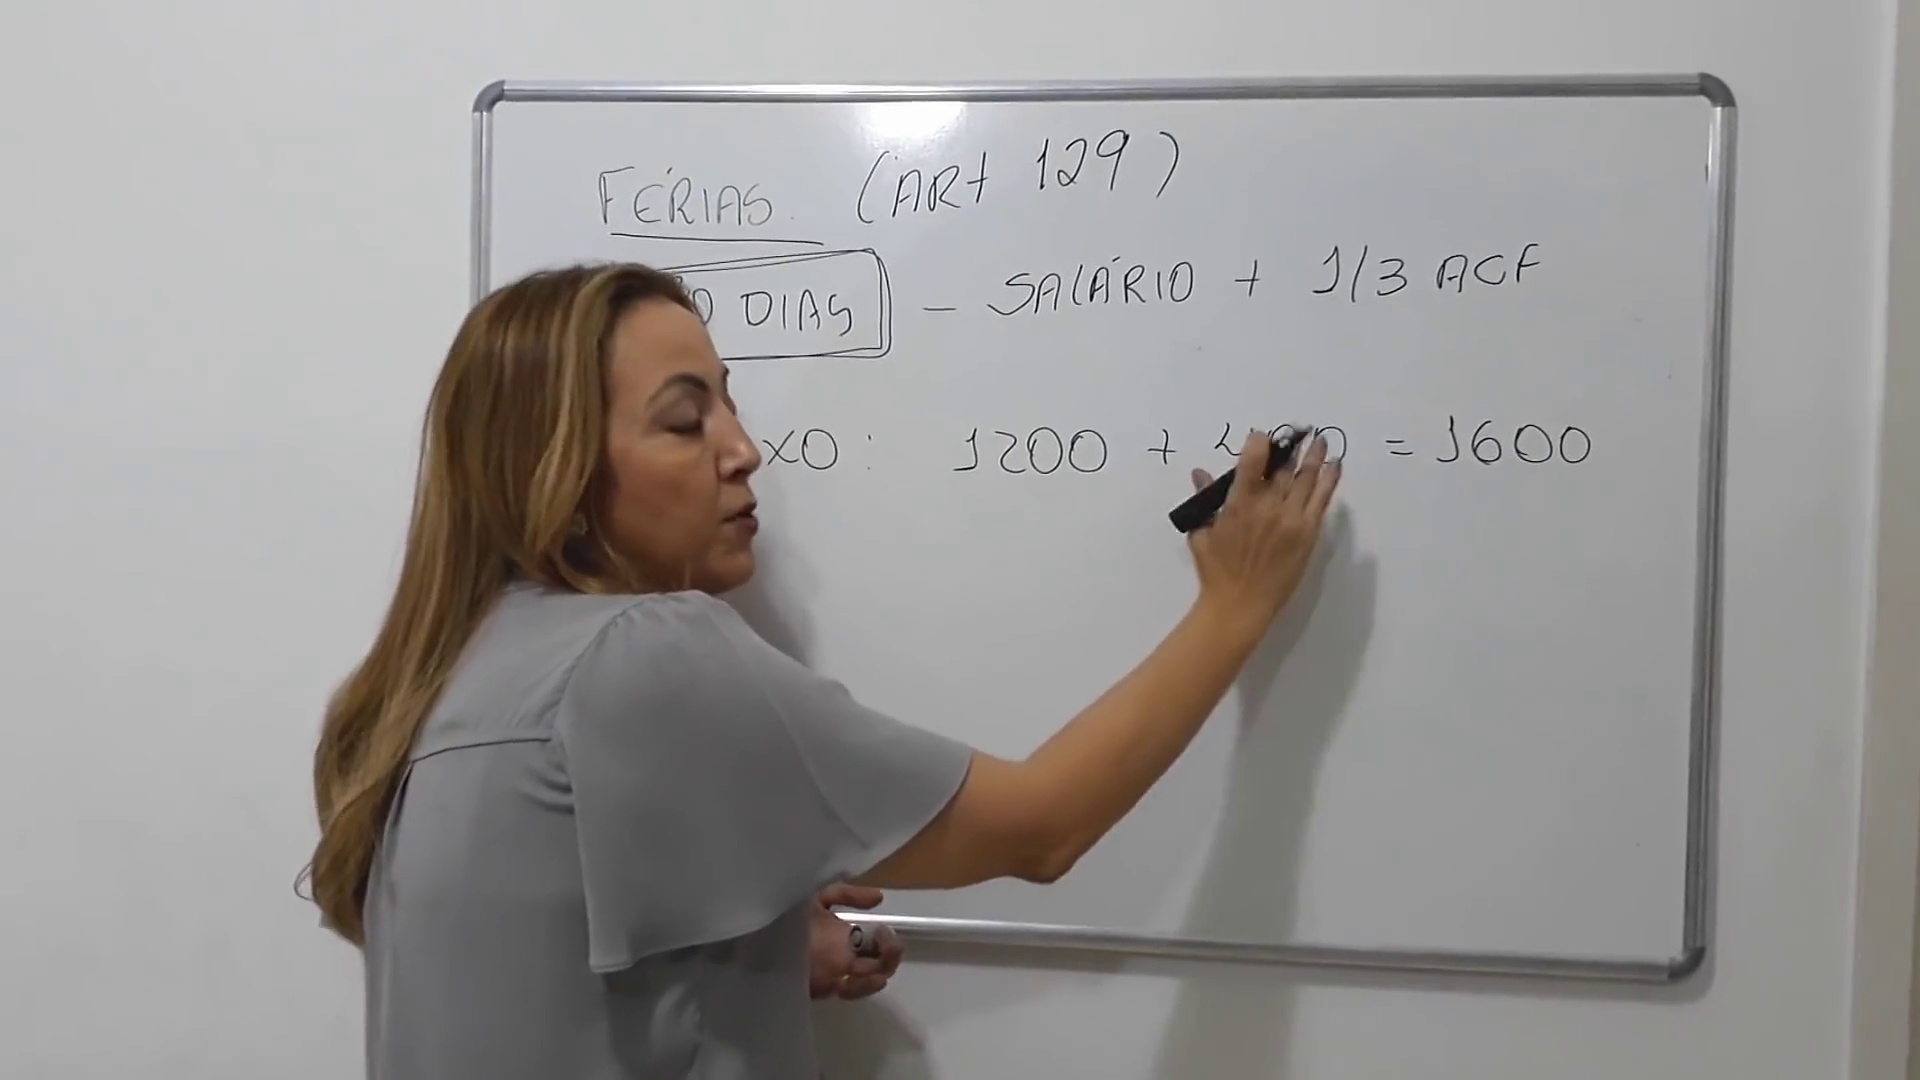 FÉRIAS. (ART 129)
DIAS - SALÁRIO + 1/3 ACF
XO: 1200 + 400 = 1600